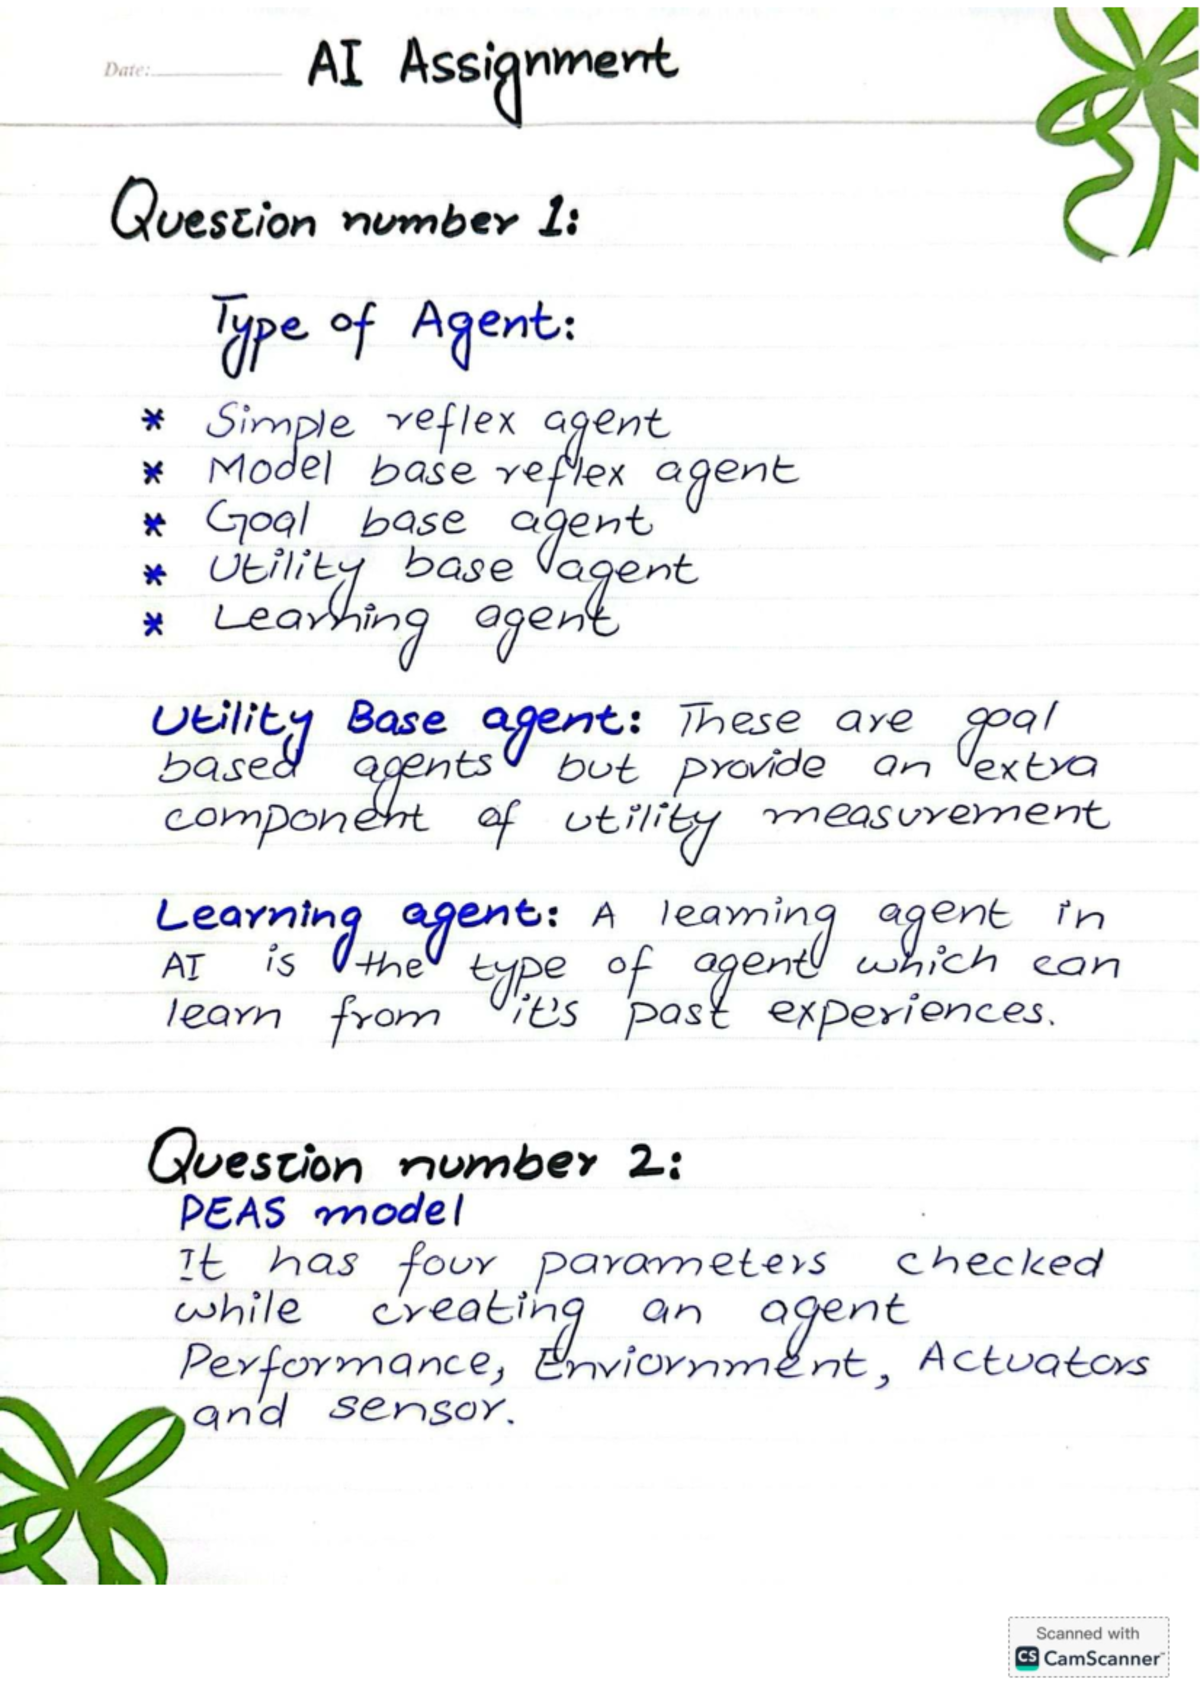 Date:
AI Assignment
Question number 1:
Type of Agent:
* Simple reflex agent
* Model base reflex agent
* Goal base agent
* Utility base agent
* Learning agent
Utility Base agent: These are goal
based agents but provide an extra
component of utility measurement
Learning agent: A learning agent in
AI is the type of agent which can
learn from it's past experiences.
Question number 2:
PEAS model
It has four parameters checked
while creating an agent
Performance, Enviornment, Actuators
and sensor.
Scanned with
CS CamScanner